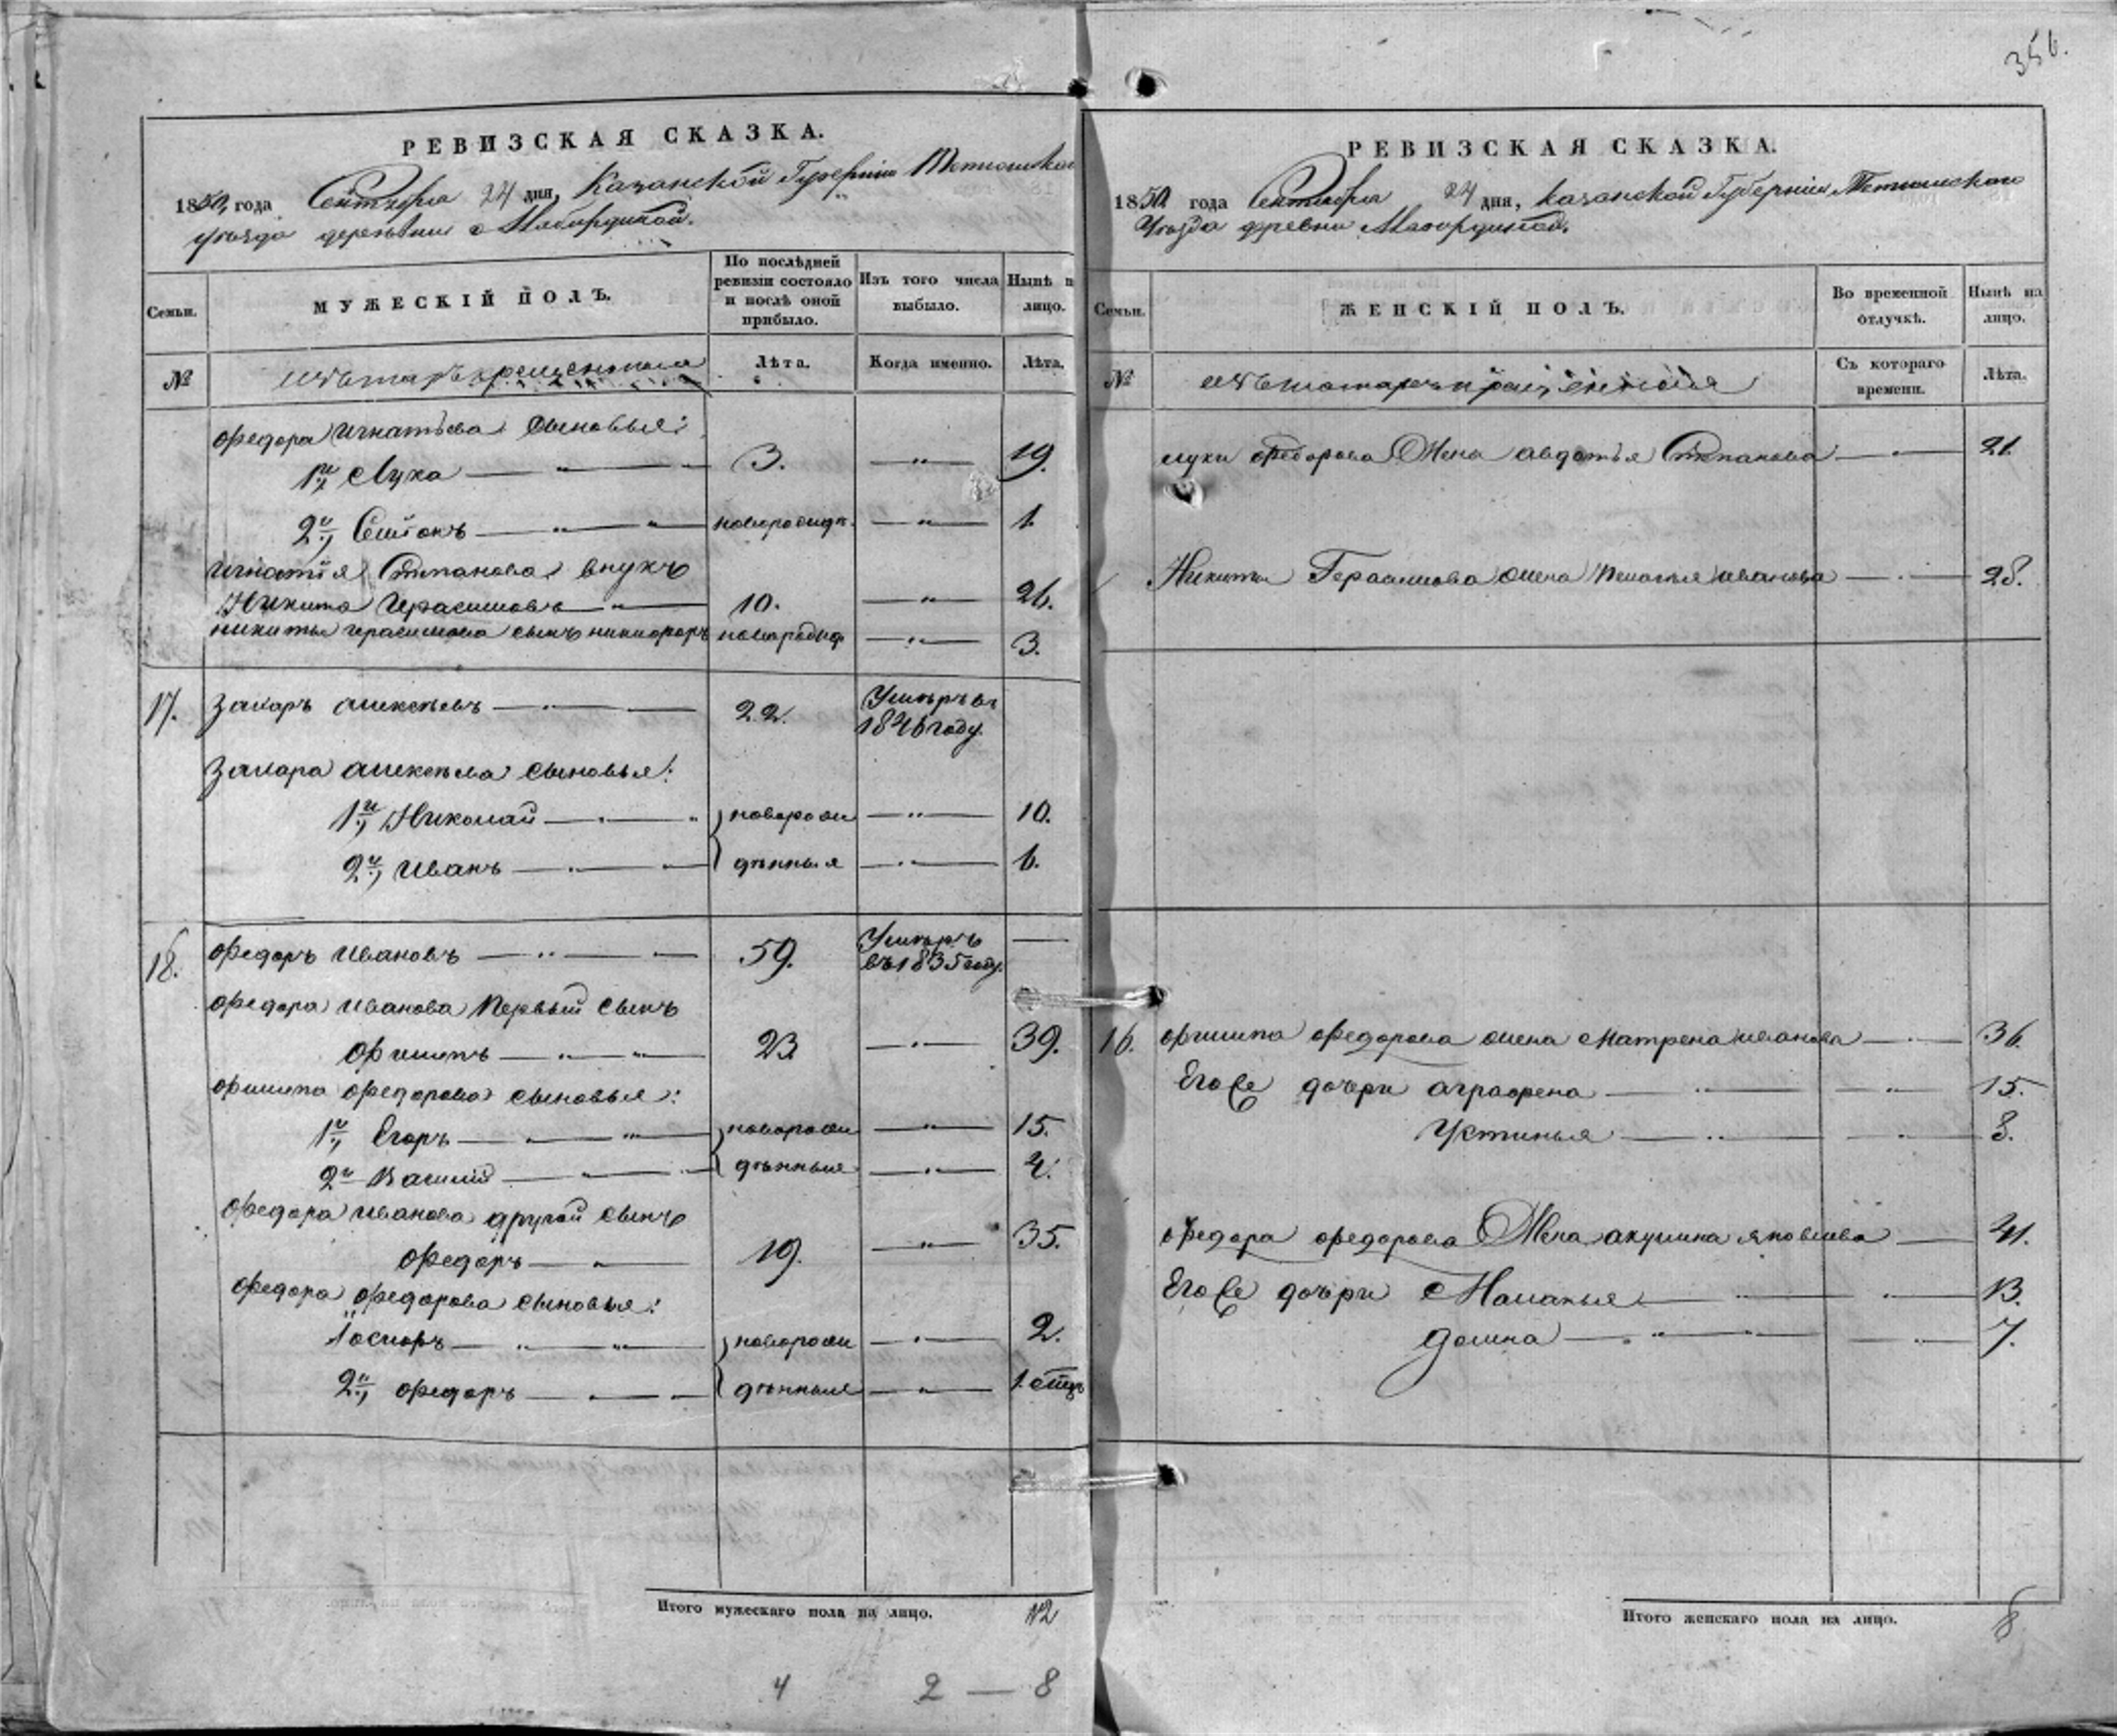 РЕВИЗСКАЯ СКАЗКА.
1850 года Сентября 24 дня, Казанской Губернии Тетюшскаго
уезда деревни
Семьи.
МУЖЕСКІЙ ПОЛЪ.
По послѣдней ревизіи состояло и послѣ оной прибыло.
Изъ того числа выбыло.
Нынѣ н лицо.
№
Лѣта.
Когда именно.
Лѣта.
Федора Игнатьева сыновья:
1й Лука — 3. — 19.
2й — новорожд. — 1.
Игнатія Степанова внукъ
Никита Герасимовъ — 10. — 26.
Никиты Герасимова сынъ Никифоръ новорожд. — 3.
17. Захаръ Алексѣевъ — 22. Умеръ въ
1846 году.
Захара Алексѣева сыновья:
1й Николай — новорож — 10.
2й Иванъ — денныя — 6.
18. Федоръ Ивановъ — 59. Умеръ —
въ 1835 году.
Федора Иванова первый сынъ
Филипъ — 23 — 39.
Филипа Федорова сыновья:
1й Егоръ — новорож — 15.
2й Василій — денныя — 4.
Федора Иванова другой сынъ
Федоръ — 19. — 35.
Федора Федорова сыновья:
1 — новорож — 2.
2й Федоръ — денныя — 1.
Итого мужескаго пола на лицо. 12
4 2 — 8
356.
РЕВИЗСКАЯ СКАЗКА.
1850 года Сентября 24 дня, Казанской Губернии Тетюшскаго
Уезда деревни
Семьи.
ЖЕНСКІЙ ПОЛЪ.
Во временной отлучкѣ.
Нынѣ на лицо.
№
Съ котораго времени.
Лѣта.
Луки Федорова Жена Авдотья Степанова — 21.
Никиты Герасимова жена Пелагья Иванова — 28.
16. Филипа Федорова жена Матрена Иванова — 36.
Его Же дочери Аграфена — 15.
Устинья — 8.
Федора Федорова Жена Акулина Яковлева — 41.
Его Же дочери Маланья — 13.
Домна — 7.
Итого женскаго пола на лицо. 8